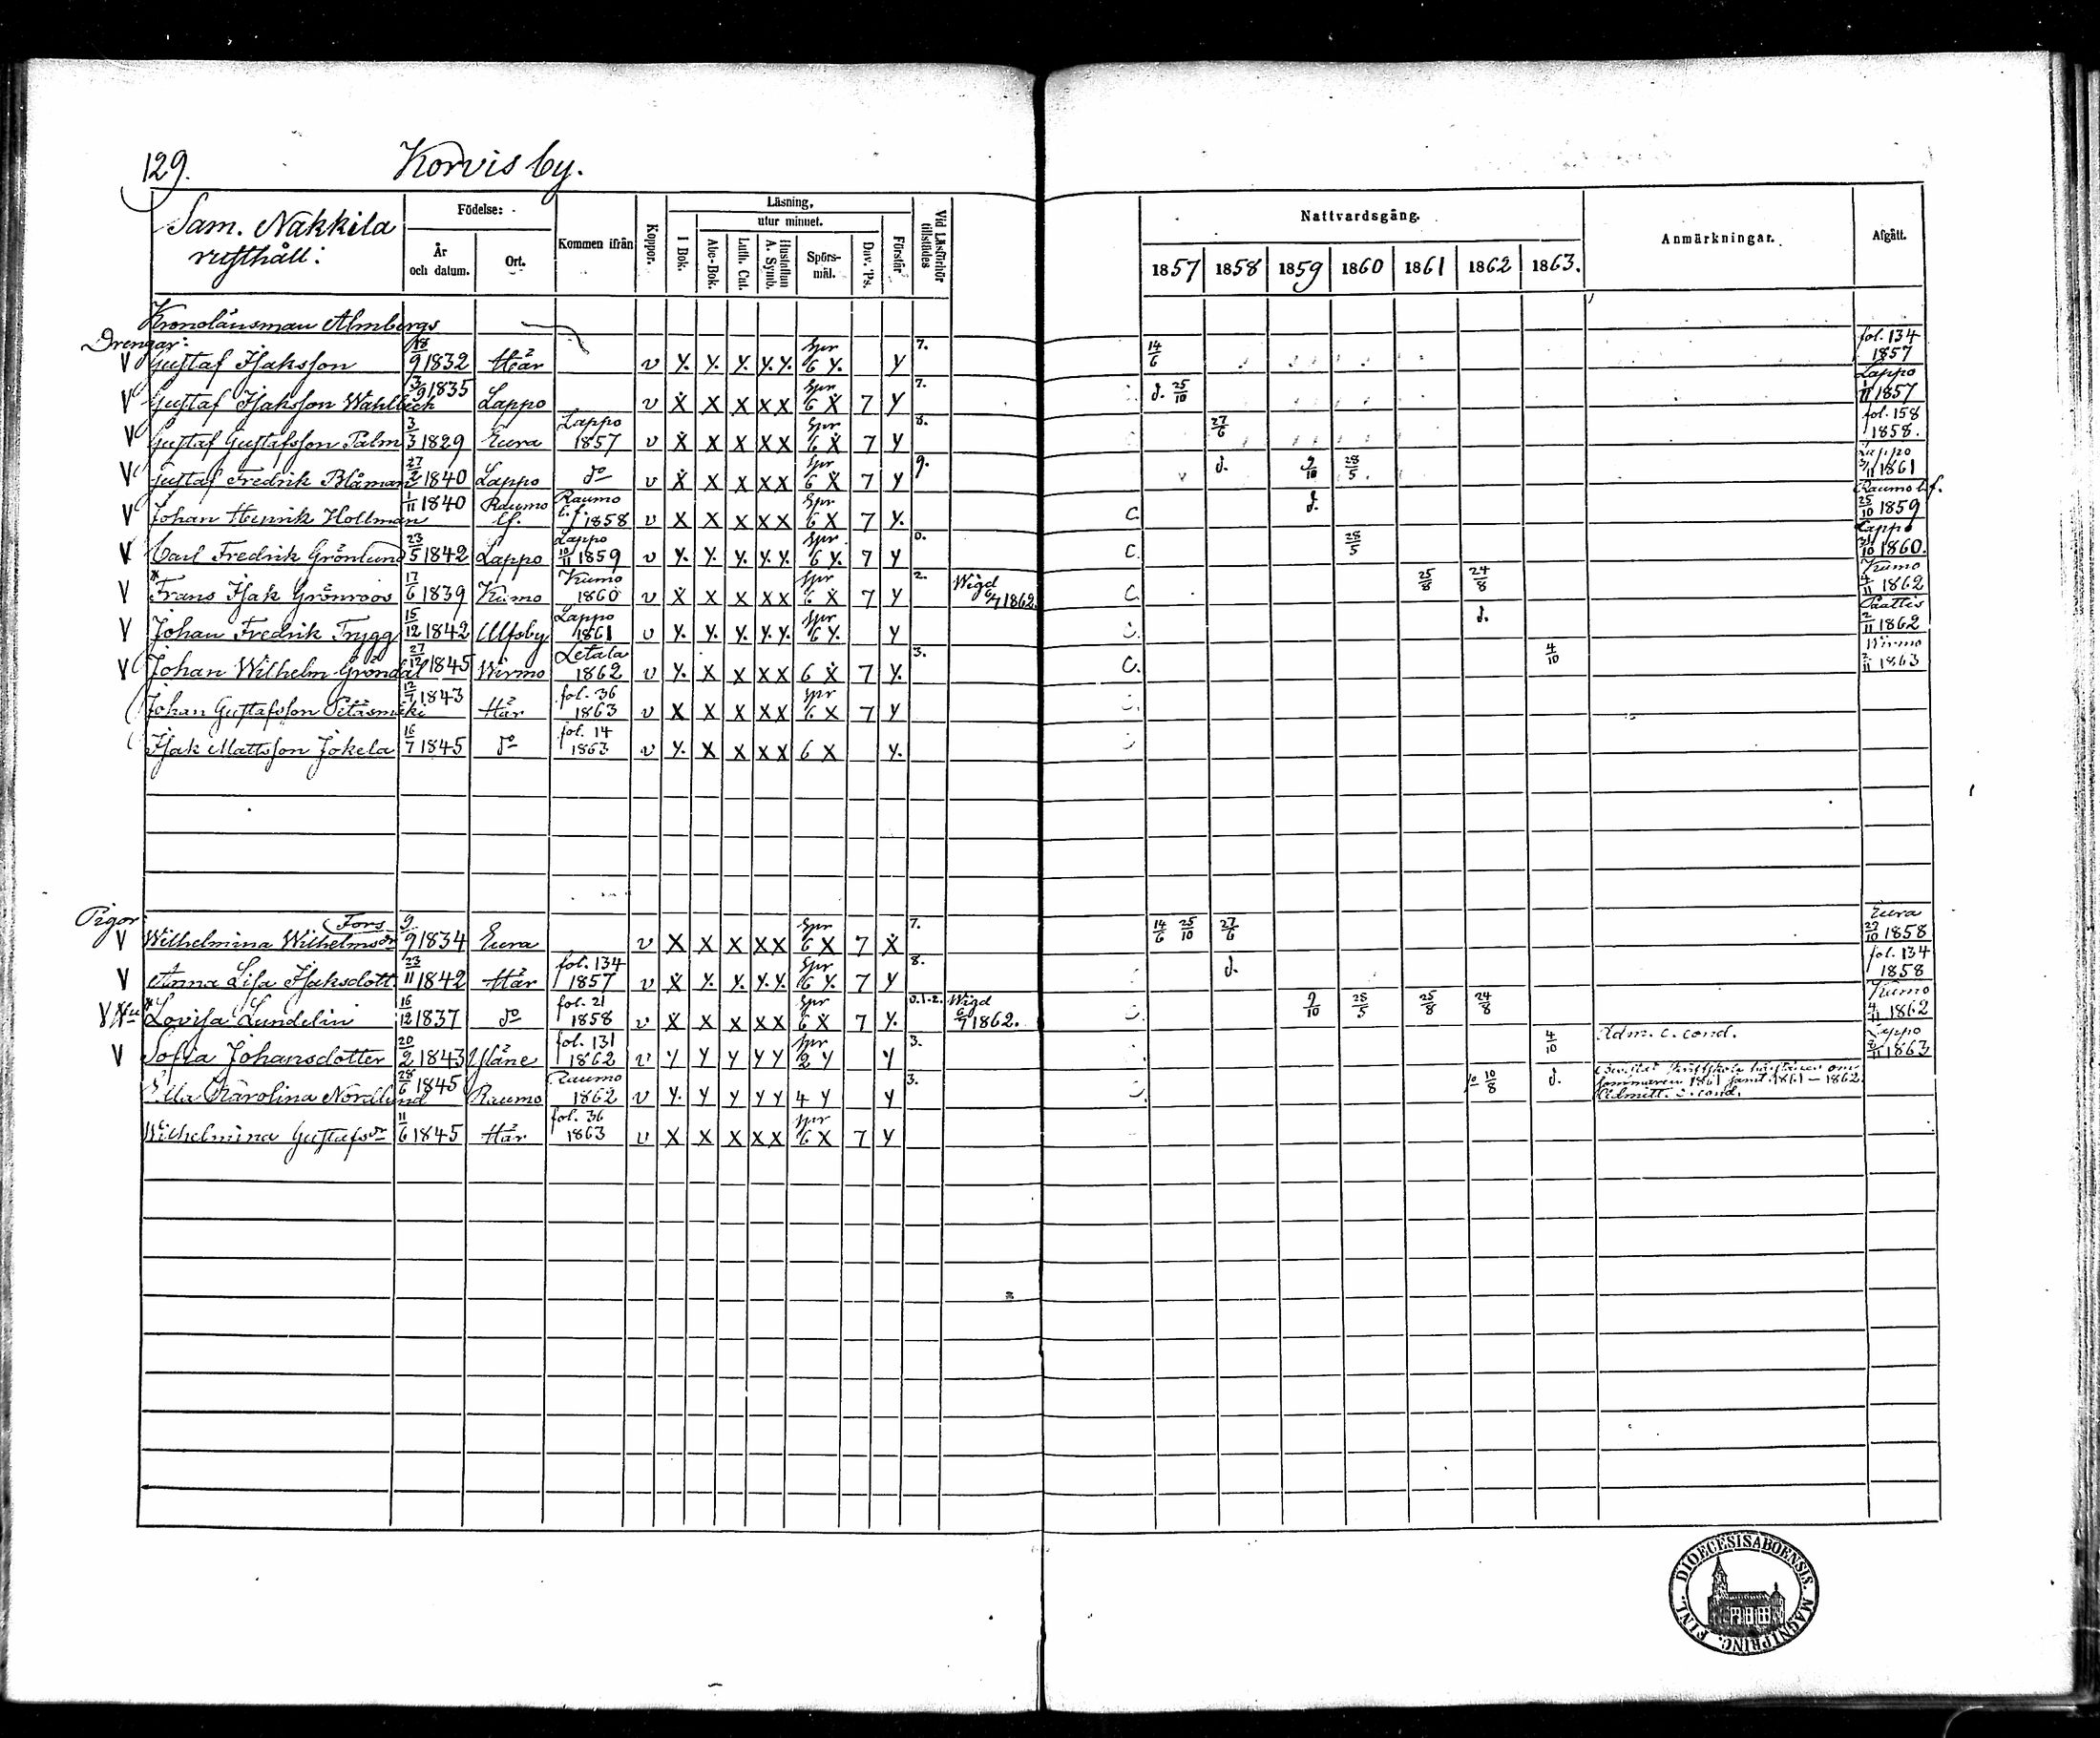 129. Korvis by.
Sam. Nakkila
rusthåll:
Födelse:
År och datum.
Ort.
Kommen ifrån
Koppor.
Läsning,
utur minnet.
I Bok.
Abc-Bok.
Luth. Cat.
Hustaflan A. Symb.
Spörs-mål.
Dav. Ps.
Förstår
Vid Läsförhör tillstädes
Nattvardsgång.
1857 1858 1859 1860 1861 1862 1863.
Anmärkningar.
Afgått.
Kronolänsman Almbergs
Drengar:
V Gustaf Isaksson 18/9 1832 Här v y. y. y. y. y. Spr 6 y. y 7. 14/6 fol. 134 1857
V Gustaf Isaksson Wahlbeck 3/9 1835 Lappo v X X X X X Spr 6 X 7 y 7. d. 25/10 Lappo 1/11 1857
V Gustaf Gustafsson Palm 3/3 1829 Eura Lappo 1857 v X X X X X Spr 6 X 7 y 8. 27/6 fol. 158 1858.
V Gustaf Fredrik Blåman 27/2 1840 Lappo do v X X X X X Spr 6 X 7 y 9. d. 9/10 28/5 Lappo 3/11 1861
V Johan Henrik Hollman 1/11 1840 Raumo lf. Raumo l.f. 1858 v X X X X X Spr 6 X 7 y. C. d. Raumo l.f. 25/10 1859
V Carl Fredrik Grönlund 23/5 1842 Lappo Lappo 10/11 1859 v y. y. y. y. y. Spr 6 y. 7 y 0. C. 28/5 Lappo 31/10 1860.
V Frans Isak Grönroos 17/6 1839 Kumo Kumo 1860 v X X X X X Spr 6 X 7 y 2. Wigd 6/7 1862. C. 25/8 24/8 Kumo 4/11 1862
V Johan Fredrik Trygg 15/12 1842 Ulfsby Lappo 1861 v y. y. y. y. y. Spr 6 y. y d. Paattis 2/11 1862
V Johan Wilhelm Gröndal 27/12 1845 Wirmo Letala 1862 v y. X X X X 6 X 7 y. 3. C. 4/10 Wirmo 2/11 1863
Johan Gustafsson Pitäsmäki 12/7 1843 Här fol. 36 1863 v X X X X X Spr 6 X 7 y
Isak Mattsson Jokela 16/7 1845 do fol. 14 1863 v y. X X X X 6 X y.
Pigor
V Wilhelmina Wilhelmsdr Fors 9/9 1834 Eura v X X X X X Spr 6 X 7 X 7. 14/6 25/10 27/6 Eura 29/10 1858
V Anna Lisa Isaksdott. 23/11 1842 Här fol. 134 1857 v X y. y. y. y. Spr 6 y. 7 y 8. d. fol. 134 1858
V Lovisa Lundelin 16/12 1837 do fol. 21 1858 v X X X X X Spr 6 X 7 y. 0.1-2. Wigd 6/7 1862. 9/10 28/5 25/8 24/8 Kumo 4/11 1862
V Sofia Johansdotter 20/2 1843 Yläne fol. 131 1862 v y y y y y Spr 2 y y 3. 4/10 Adm. c. cond. Lappo 2/11 1863
Ulla Karolina Nordlund 28/6 1845 Raumo Raumo 1862 v y. y y y y 4 y y 3. 10/8 d. sommaren 1861 samt 1861–1862. Admitt. c. cond.
Wilhelmina Gustafsdr 11/6 1845 Här fol. 36 1863 v X X X X X Spr 6 X 7 y
DIOECESIS ABOENSIS. MAGNI PRINC. FINL.